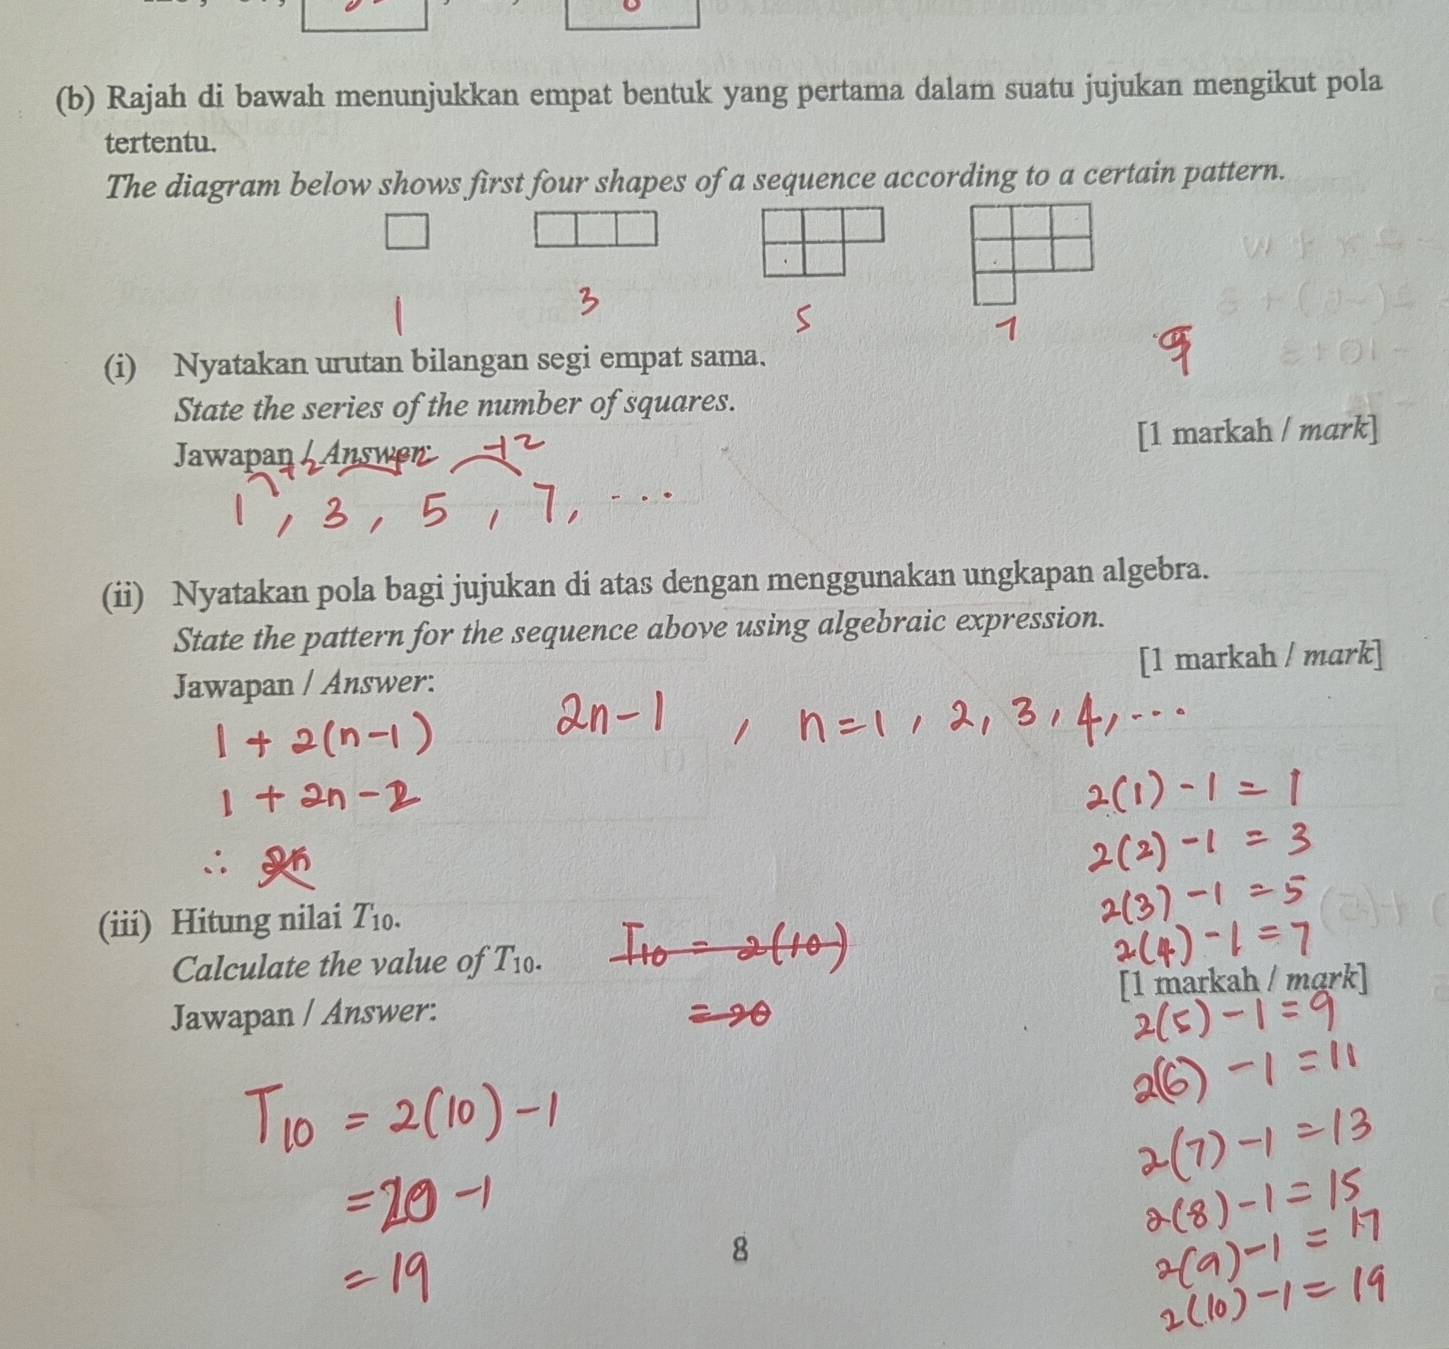 (b) Rajah di bawah menunjukkan empat bentuk yang pertama dalam suatu jujukan mengikut pola
tertentu.
The diagram below shows first four shapes of a sequence according to a certain pattern.
1 3 5 7 9
(i) Nyatakan urutan bilangan segi empat sama.
State the series of the number of squares.
[1 markah / mark]
Jawapan / Answer:
+2 +2
1, 3, 5, 7, ...
(ii) Nyatakan pola bagi jujukan di atas dengan menggunakan ungkapan algebra.
State the pattern for the sequence above using algebraic expression.
[1 markah / mark]
Jawapan / Answer:
1 + 2(n-1)
2n-1, n=1, 2, 3, 4, ...
1 + 2n - 2
∴ 2n
2(1) - 1 = 1
2(2) - 1 = 3
2(3) - 1 = 5
2(4) - 1 = 7
(iii) Hitung nilai T10.
Calculate the value of T10.
T10 = 2(10)
= 20
[1 markah / mark]
Jawapan / Answer:
2(5) - 1 = 9
2(6) - 1 = 11
2(7) - 1 = 13
2(8) - 1 = 15
2(9) - 1 = 17
2(10) - 1 = 19
T10 = 2(10) - 1
= 20 - 1
= 19
8